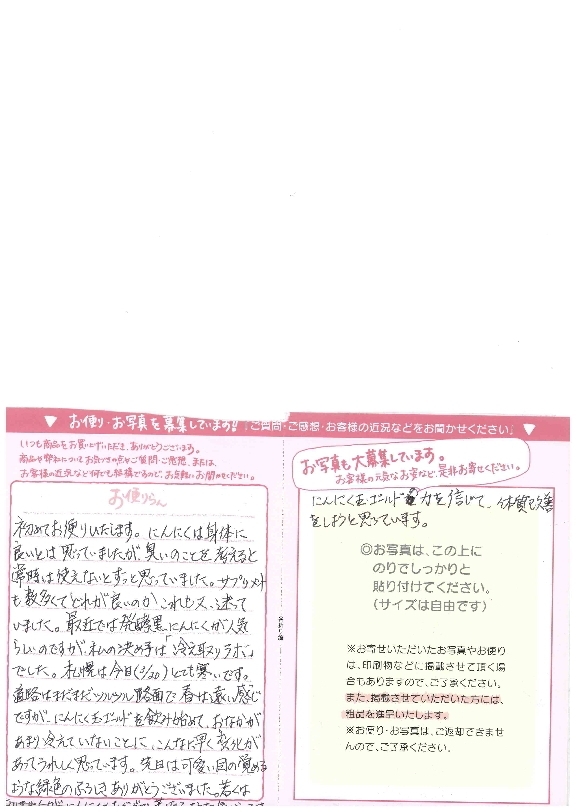 ▼ お便り・お写真を募集しています!!「ご質問・ご感想・お客様の近況などをお聞かせください」 ▼
いつも商品をお買い上げいただき、ありがとうございます。
商品や弊社についてお気づきの点やご質問・ご感想、または、
お客様の近況など何でも結構ですので、お気軽にお聞かせください。
お便りらん
初めてお便りいたします。にんにくは身体に
良いとは思っていましたが、臭いのことを考えると
常時は使えないとずっと思っていました。サプリメント
も数多くてどれが良いのか これも又、迷って
いました。最近では発酵黒にんにくが人気
らしいのですが、私の決め手は「冷え取りラボ」
でした。札幌は今日(3/20)とても寒いです。
道路はまだまだツルツル路面で 春は遠い感じ
ですが、にんにく玉ゴールドを飲み始めて、おなかが
あまり冷えていないことに、こんなに早く変化が
あってうれしく思っています。先日は可愛い目の覚める
ような緑色のふろしきありがとうございました。若くは
お写真も大募集しています。
お客様の元気なお姿など、是非お寄せください。
にんにく玉ゴールドの力を信じて、体質改善
をしようと思っています。
◎お写真は、この上に
のりでしっかりと
貼り付けてください。
(サイズは自由です)
※お寄せいただいたお写真やお便り
は、印刷物などに掲載させて頂く場
合もありますので、ご了承ください。
また、掲載させていただいた方には、
粗品を進呈いたします。
※お便り・お写真は、ご返却できませ
んので、ご了承ください。